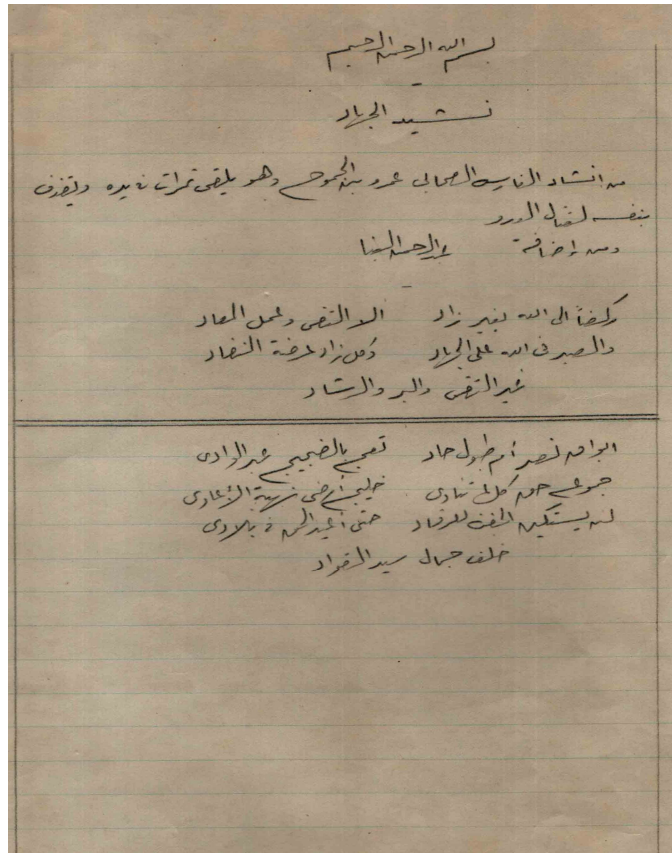 بسم الله الرحمن الرحيم
نشيد الجهاد
من انشاد الفارس الصحابى عمرو بن الجموح وهو يلقى تمرات فى يده ويقذف
بنفسه لقتال العدو
ومن إضافة عبد الرحمن البنا
ركضاً الى الله بغير زاد الا التقى وعمل المعاد
والصبر فى الله على الجهاد وكل زاد عرضة النفاد
غير التقى والبر والرشاد
ابواق نصر أم طبول حاد تعج بالضجيج عبر الوادى
جموع حق كلها تنادى الأعادى
لن يستكين الجفن للرقاد حتى أعيد الحق فى بلادى
خلف جمال سيد القواد